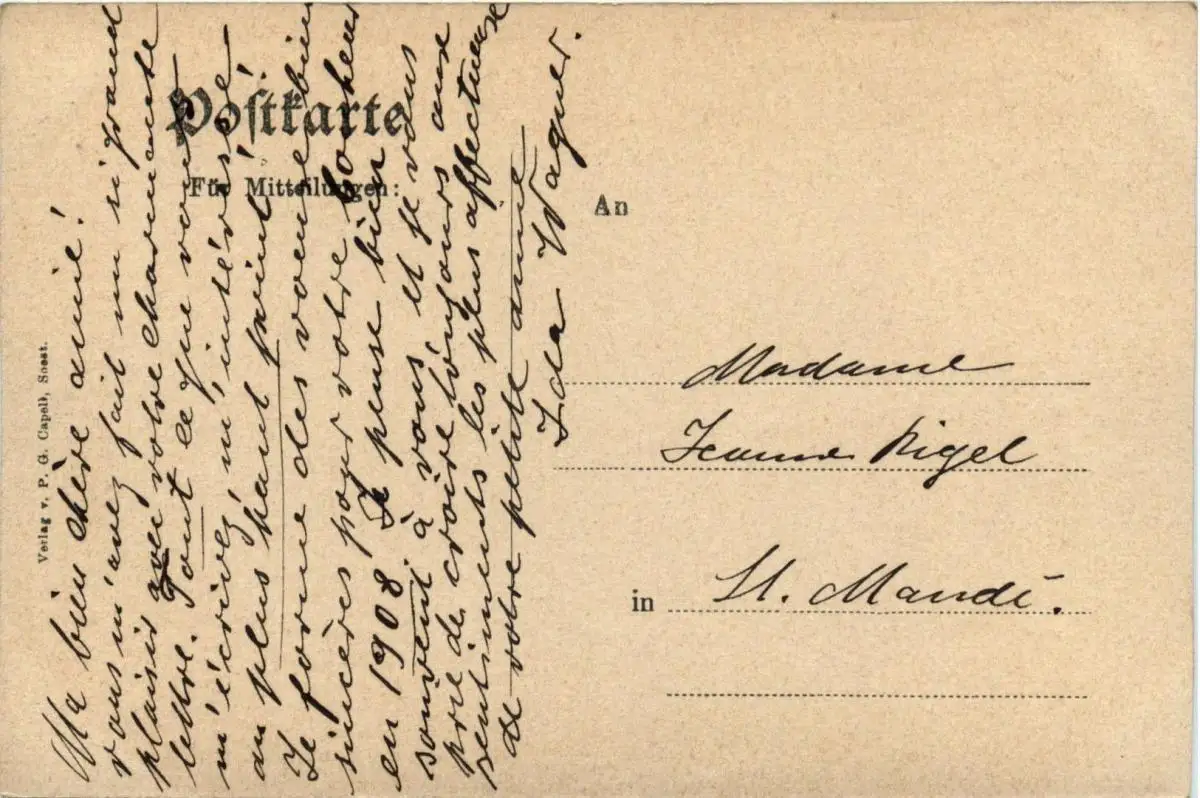 Postkarte
Für Mitteilungen:
An
in
Verlag v. P. G. Capell, Soest.
Ma bien chère amie!
vous m'avez fait un si grand
plaisir avec votre charmante
lettre. Tout ce que vous
m'écrivez m'intéresse
au plus haut point!
Je forme des voeux bien
sincères pour votre bonheur
en 1908. Je pense bien
souvent à vous et je vous
prie de croire toujours aux
sentiments les plus affectueux
de votre petite amie
Ida Wagner.
Madame
Jeanne Rigel
St. Mandé.